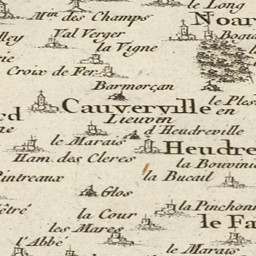 le Long
Min des Champs
Noar
Val Verger
Bogu
lley
la Vigne
rie
Croix de Fer
Barmorçan
le Ples
Cauverville en
Lieuvin
rd
d'Heudreville
ne
le Marais
Heudre
Ham. des Cleres
la Bouvini
Pintreaux
la Bucail
Glos
la Pinchon
êtré
la Cour
le Fa
les Mares
l'Abbé
le Marais